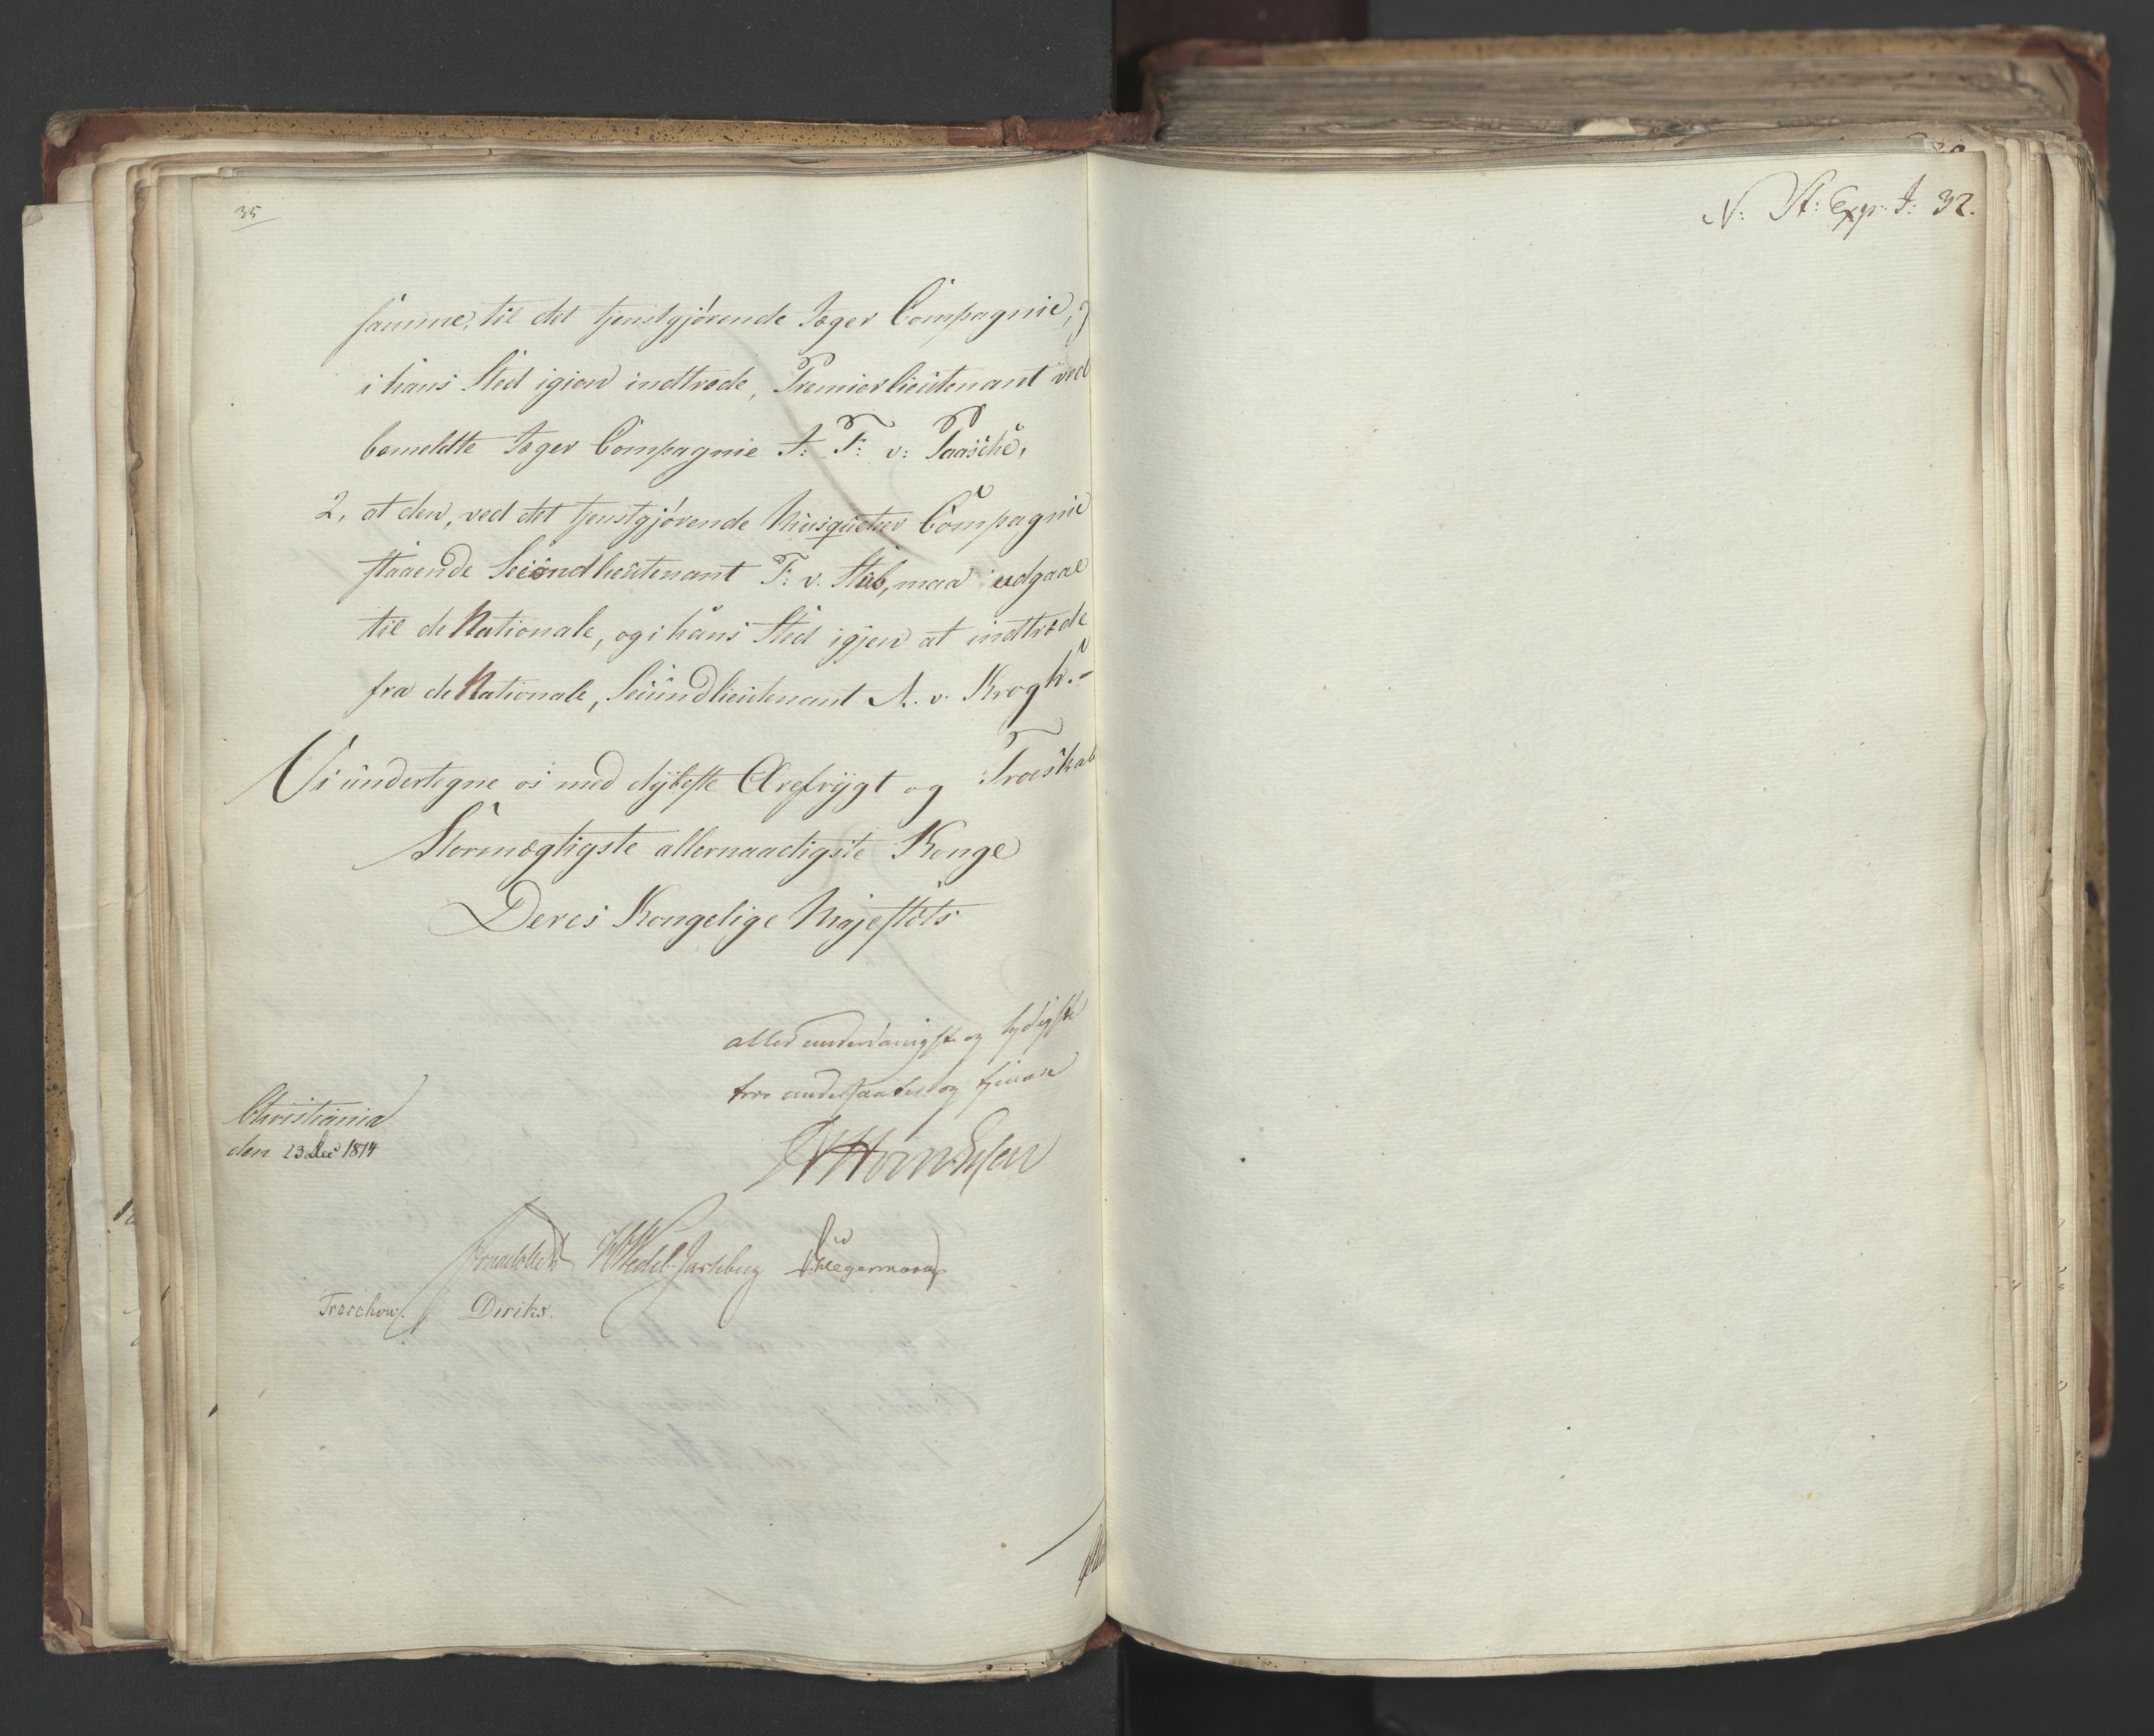 35
samme, til det tjenstgjörende Jæger Compagnie,
i hans Sted igien indtræde, Premierlieutenant ved
bemeldte Jæger Compagnie J: F: v: Paasche,
2, at den, ved det tjenstgjörende Musqueteer Compagnie
staaende Secondlieutenant F: v. Stüb, maa udgaae
til de Nationale, og i hans Sted igjen at indtræde
fra de Nationale, Secundlieutenant A. v. Krogh.-
Vi undertegne os med dybeste Ærefrygt og Troeskab
Stormægtigste allernaadigste Konge
Deres Kongelige Majestæts
allerunderdanigste og lydigste
troe undersaatter og tjenere
Christiania
den 23 Dec 1814
Hornemann
Sommerhielm HWedel-Jarlsberg Hegermann
Treschow. Diriks.
N: St: Exp: I: 32.